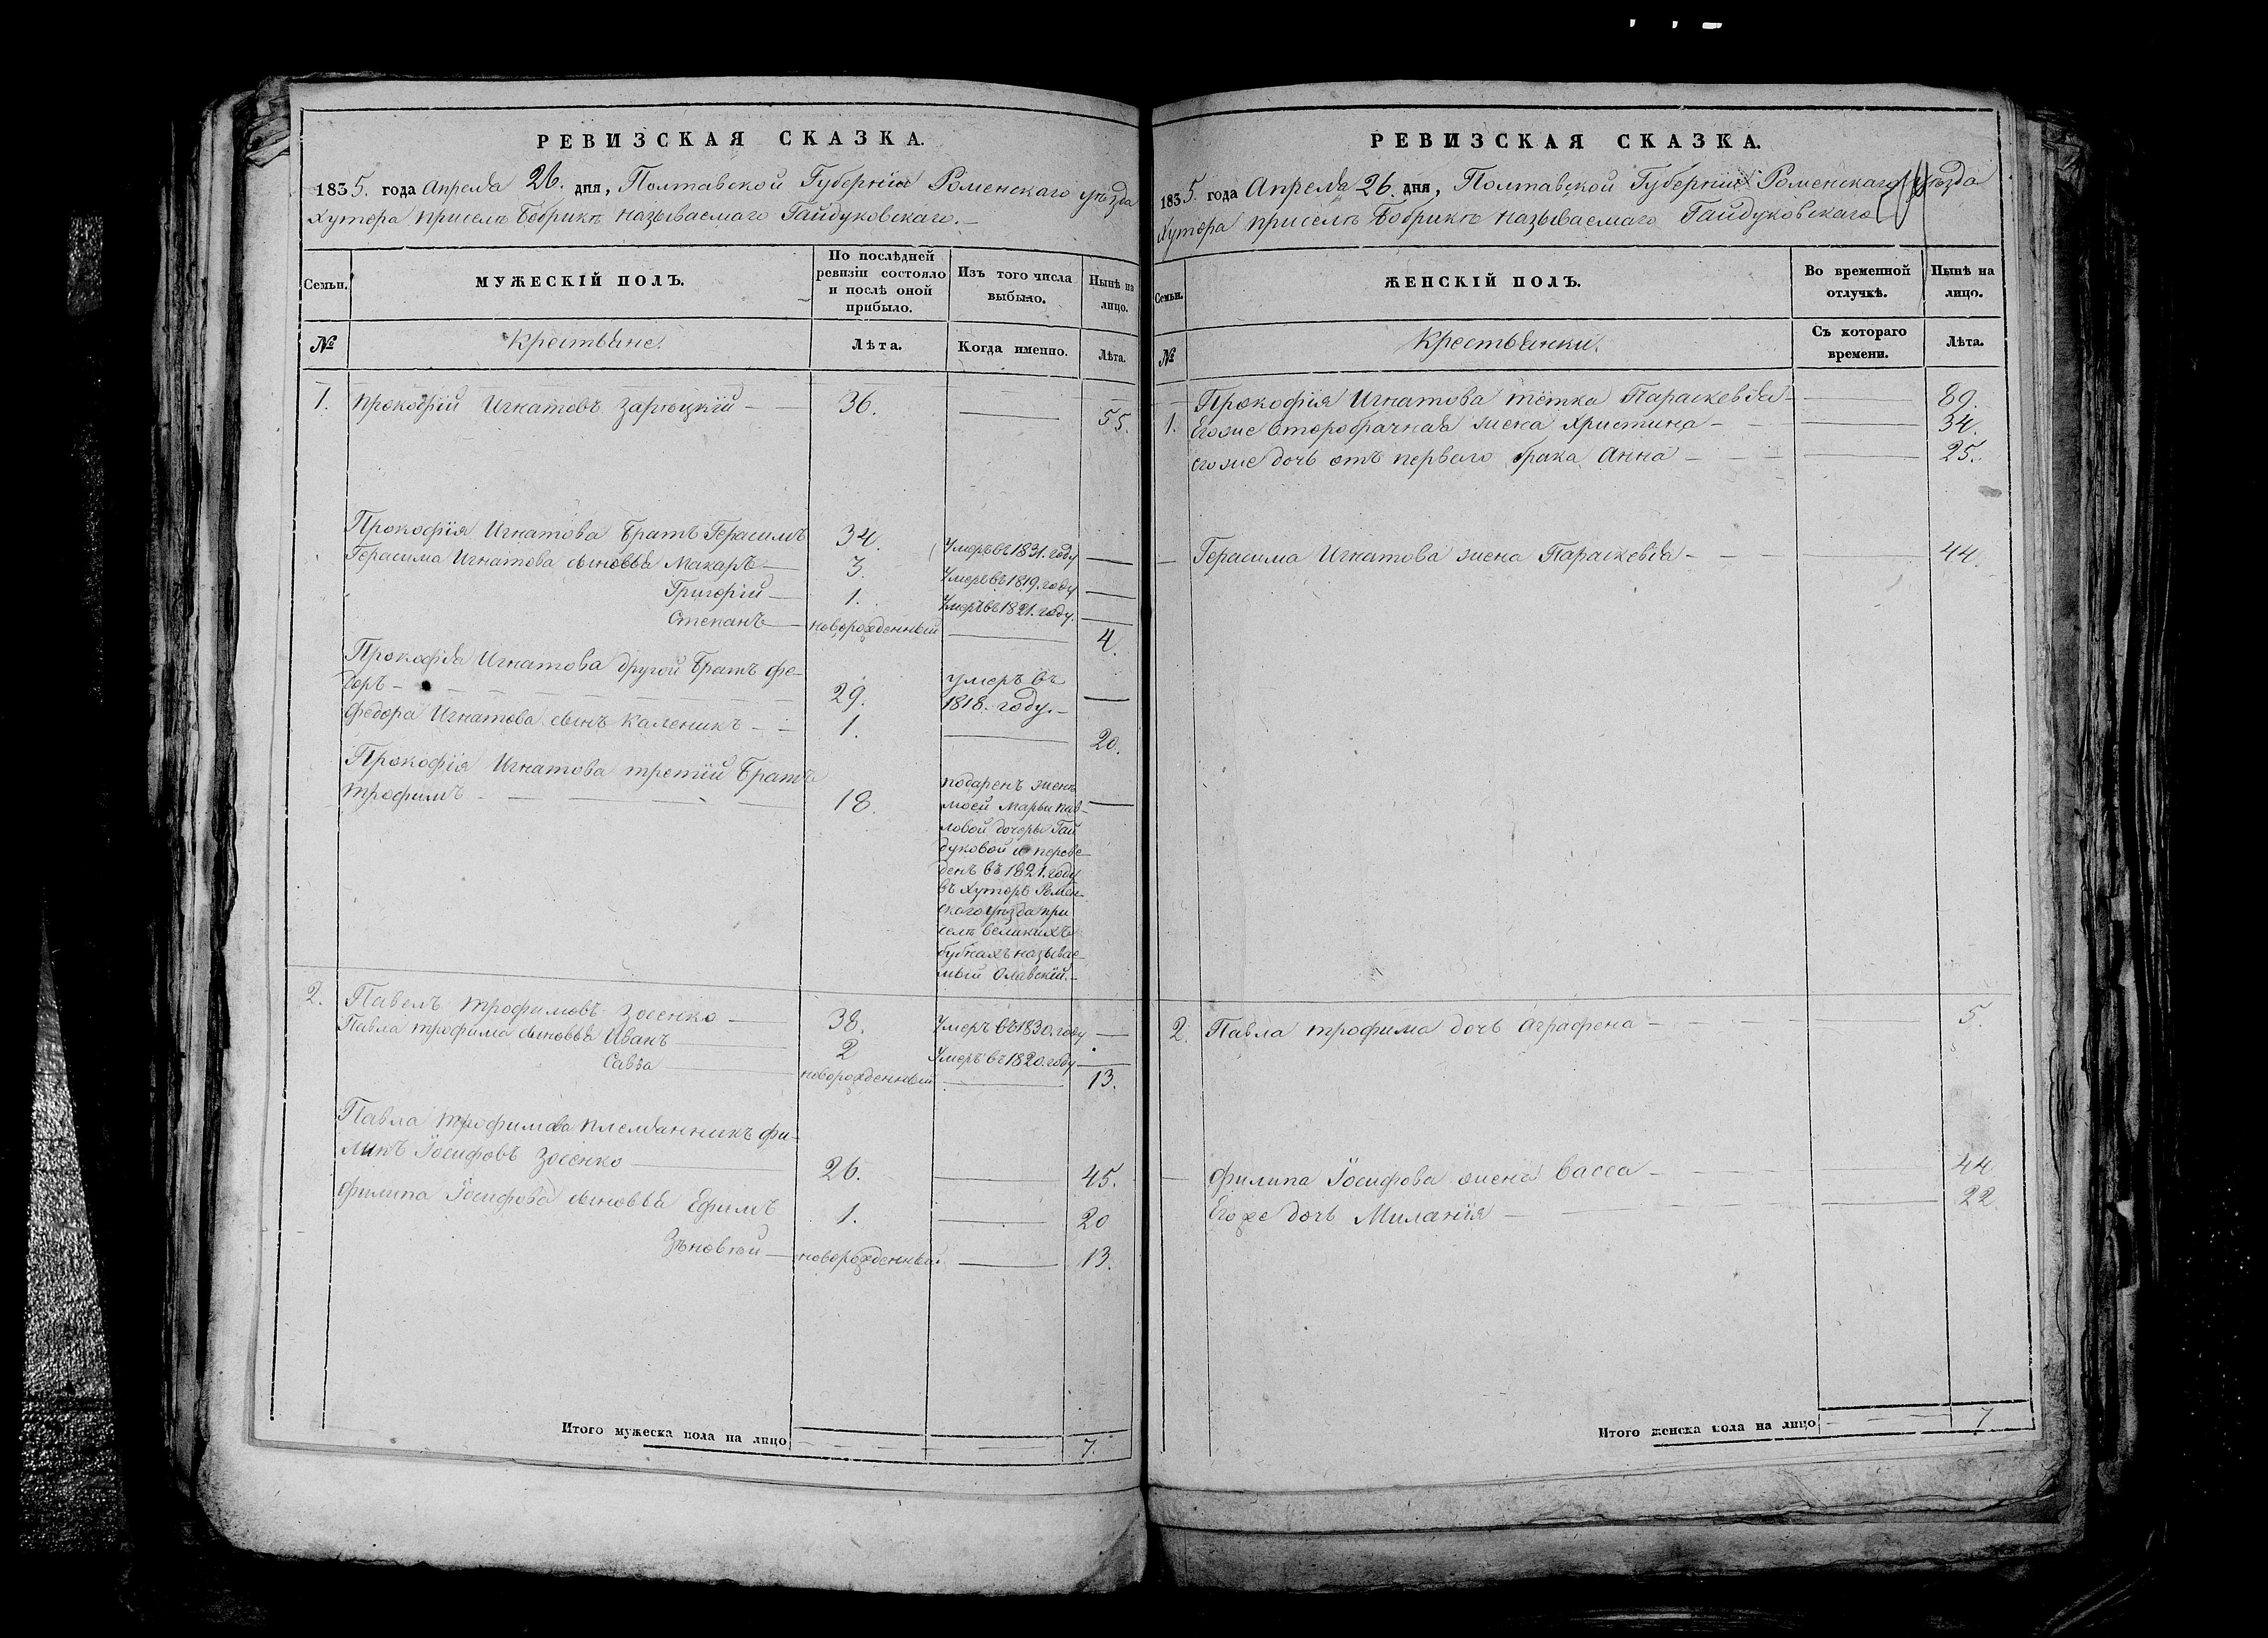 РЕВИЗСКАЯ СКАЗКА.
1835. года Апреля 26. дня, Полтавской Губернии Роменскаго уезда
Хутора приселе Бобрике называемаго Гайдуковскаго.—
Семьи.
МУЖЕСКІЙ ПОЛЪ.
По послѣдней ревизіи состояло и послѣ оной прибыло.
Изъ того числа выбыло.
Нынѣ на лицо.
№
Крестьяне.
Лѣта.
Когда именно.
Лѣта.
1. Прокофій Игнатовъ 36. — 55.
Прокофія Игнатова братъ Герасимъ 34. Умеръ въ 1831. году —
Герасима Игнатова сыновья Макаръ — 3. Умеръ въ 1819. году —
Григорій — 1. Умеръ въ 1821. году. —
Степанъ — новорожденный — 4.
Прокофія Игнатова другой братъ Фе-
доръ — 29. умеръ въ 1818. году. — —
Федора Игнатова сынъ Каленикъ — 1. — 20.
Прокофія Игнатова третій братъ
Трофимъ — 18. —
подаренъ жене
моей Марьи Пав-
ловой дочери Гай
дуковой и переве-
денъ въ 1821. году
въ хуторъ Ромен-
скаго уезда при
селе Великихъ
бубнахъ называе-
мый
2. Павелъ Трофимовъ Зосенко — 38. Умеръ въ 1830. году —
Павла Трофима сыновья Иванъ — 2 Умеръ въ 1820. году —
Савва — новорожденный — 13.
Павла Трофимова племянникъ Фи-
липъ Іосифовъ Зосенко — 26. — 45.
Филипа Іосифова сыновья Ефимъ 1. — 20
Зѣновій — новорожденный — 13.
Итого мужеска пола на лицо 7.
РЕВИЗСКАЯ СКАЗКА.
1835. года Апреля 26. дня, Полтавской Губернии Роменскаго уезда
Хутора приселе Бобрике называемаго Гайдуковскаго
Семьи.
ЖЕНСКІЙ ПОЛЪ.
Во временной отлучкѣ.
Нынѣ на лицо.
№
Крестьянки.
Съ котораго времени.
Лѣта.
— Прокофія Игнатова тётка Параскевія — 89.
1. Егоже второбрачная жена Христина — 34.
егоже дочь отъ перваго брака Анна — 25.
— Герасима Игнатова жена Параскевія — 44.
2. Павла Трофима дочь Аграфена — 5.
— Филипа Іосифова жена Васса — 44
Егоже дочь Миланія — 22.
Итого женска пола на лицо 7